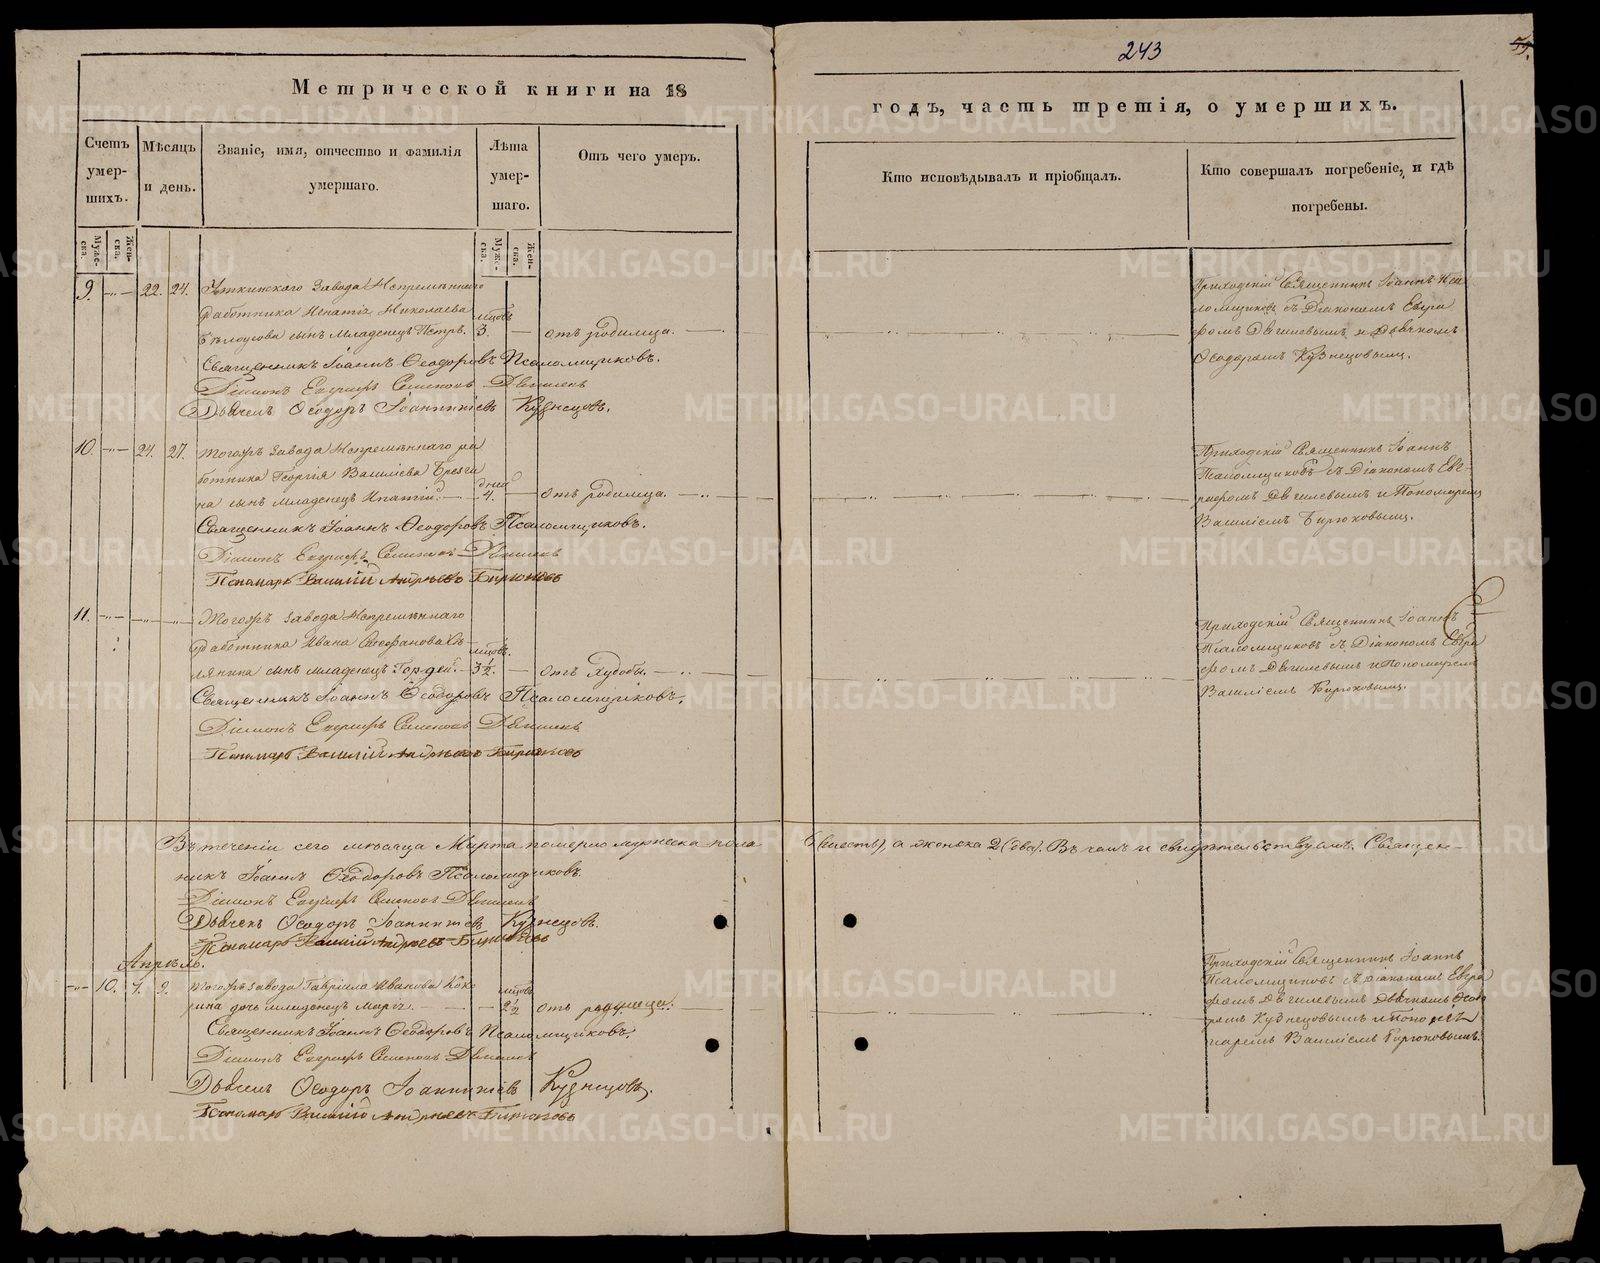 243
59.
Метрической книги на 18
годъ, часть третія, о умершихъ.
Счетъ умерших.
Мѣсяцъ и день.
Званіе, имя, отчество и фамилія умершаго.
Лѣта умершаго.
Отъ чего умеръ.
Кто исповѣдывалъ и пріобщалъ.
Кто совершалъ погребеніе, и гдѣ погребены.
Мужеска.
Женска.
Мужеска.
Женска.
9. 22. 24. Уткинскаго Завода Непремѣннаго
работника Игнатія Николаева мѣсцов.
Бѣлоусова сынъ младенецъ Петръ. 3 — отъ родимца.
Священникъ Іоаннъ Ѳеодоровъ Псаломщиковъ.
Діаконъ Евграфъ Семеновъ
Дьячекъ Ѳеодоръ Іоанникіевъ Кузнецовъ.
Приходскій Священникъ Іоаннъ Пса
ломщиковъ съ Діакономъ Евгра
фомъ Двинивымъ и Дьячкомъ
Ѳеодоромъ Кузнецовымъ.
10. 24. 27. Тогожъ Завода Непремѣннаго ра
ботника Георгія Василіева дней
на сынъ младенецъ Ипатій. 4. — отъ родимца.
Священникъ Іоаннъ Ѳеодоровъ Псаломщиковъ.
Діаконъ Евграфъ Семеновъ
Пономарь Василій Андреевъ Бирюковъ
Приходскій Священникъ Іоаннъ
Псаломщиковъ съ Діакономъ Евг-
рафомъ и Пономаремъ
Василіемъ Бирюковымъ.
11. Тогожъ Завода Непремѣннаго
работника Ивана Стефанова мѣсцов.
сынъ младенецъ Гордей. 3½. — отъ худобы.
Священникъ Іоаннъ Ѳеодоровъ Псаломщиковъ.
Діаконъ Евграфъ Семеновъ
Пономарь Василій Андреевъ Бирюковъ
Приходскій Священникъ Іоаннъ
Псаломщиковъ съ Діакономъ Евгра
фомъ и Пономаремъ
Василіемъ Бирюковымъ.
Въ теченіи сего мѣсяца Марта померло мужеска пола 6 (шесть), а женска 2 (два). Въ чемъ и свидѣтельствуемъ. Священ-
никъ Іоаннъ Ѳеодоровъ Псаломщиковъ.
Діаконъ Евграфъ Семеновъ
Дьячекъ Ѳеодоръ Іоанникіевъ Кузнецовъ.
Пономарь Василій Андреевъ Бирюковъ
Апрѣль.
10. 7. 9. Тогожъ Завода Гавріила Иванова Коко мѣсцов.
рина дочь младенецъ Марія. 2½ отъ родимца.
Священникъ Іоаннъ Ѳеодоровъ Псаломщиковъ.
Діаконъ Евграфъ Семеновъ
Дьячекъ Ѳеодоръ Іоанникіевъ Кузнецовъ.
Пономарь Василій Андреевъ Бирюковъ
Приходскій Священникъ Іоаннъ
Псаломщиковъ съ Діакономъ Евгра
фомъ Дьячкомъ Ѳеодо
ромъ Кузнецовымъ и Поно
маремъ Василіемъ Бирюковымъ.
METRIKI.GASO-URAL.RU